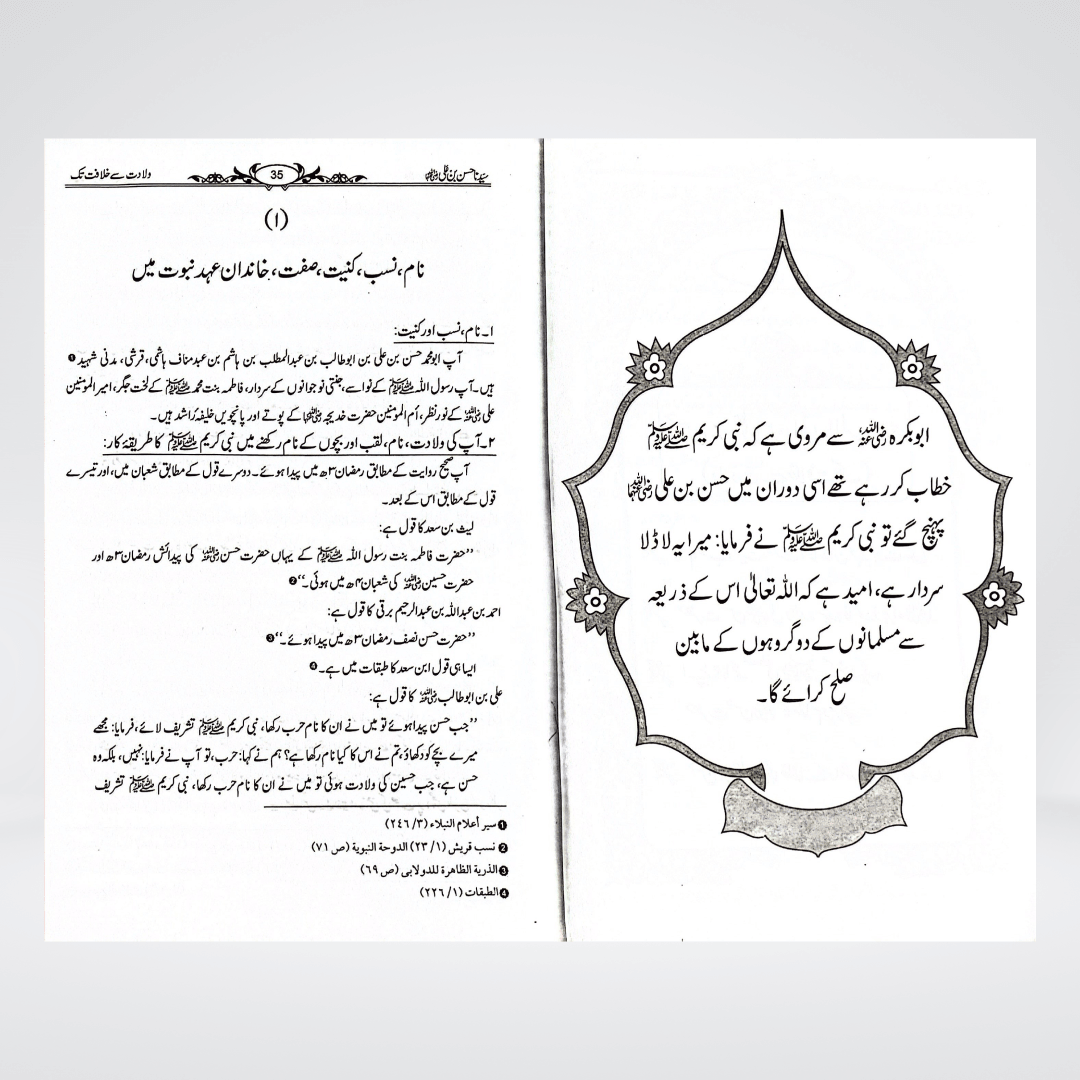 ابوبکرہ رضی اللہ عنہ سے مروی ہے کہ نبی کریم ﷺ
خطاب کر رہے تھے اسی دوران میں حسن بن علی رضی اللہ عنہما
پہنچ گئے تو نبی کریم ﷺ نے فرمایا: میرا یہ لاڈلا
سردار ہے، امید ہے کہ اللہ تعالیٰ اس کے ذریعہ
سے مسلمانوں کے دو گروہوں کے مابین
صلح کرائے گا۔
سیدنا حسن بن علی رضی اللہ عنہ 35 ولادت سے خلافت تک
(۱)
نام، نسب، کنیت، صفت، خاندان عہد نبوت میں
۱۔ نام، نسب اور کنیت:
آپ ابو محمد حسن بن علی بن ابوطالب بن عبدالمطلب بن ہاشم بن عبد مناف ہاشمی، قرشی، مدنی شہید ❶
ہیں۔ آپ رسول اللہ ﷺ کے نواسے، جنتی نوجوانوں کے سردار، فاطمہ بنت محمد ﷺ کے لخت جگر، امیر المؤمنین
علی رضی اللہ عنہ کے نور نظر، اُم المؤمنین حضرت خدیجہ رضی اللہ عنہا کے پوتے اور پانچویں خلیفہ راشد ہیں۔
۲۔ آپ کی ولادت، نام، لقب اور بچوں کے نام رکھنے میں نبی کریم ﷺ کا طریقۂ کار:
آپ صحیح روایت کے مطابق رمضان ۳ھ میں پیدا ہوئے۔ دوسرے قول کے مطابق شعبان میں، اور تیسرے
قول کے مطابق اس کے بعد۔
لیث بن سعد کا قول ہے:
’’حضرت فاطمہ بنت رسول اللہ ﷺ کے یہاں حضرت حسن رضی اللہ عنہ کی پیدائش رمضان ۳ھ اور
حضرت حسین رضی اللہ عنہ کی شعبان ۴ھ میں ہوئی۔‘‘ ❷
احمد بن عبداللہ بن عبدالرحیم برقی کا قول ہے:
’’حضرت حسن نصف رمضان ۳ھ میں پیدا ہوئے۔‘‘ ❸
ایسا ہی قول ابن سعد کا طبقات میں ہے۔ ❹
علی بن ابوطالب رضی اللہ عنہ کا قول ہے:
’’جب حسن پیدا ہوئے تو میں نے ان کا نام حرب رکھا، نبی کریم ﷺ تشریف لائے، فرمایا: مجھے
میرے بچے کو دکھاؤ، تم نے اس کا کیا نام رکھا ہے؟ ہم نے کہا: حرب، تو آپ نے فرمایا: نہیں، بلکہ وہ
حسن ہے، جب حسین کی ولادت ہوئی تو میں نے ان کا نام حرب رکھا، نبی کریم ﷺ تشریف
❶ سير أعلام النبلاء (٣/ ٢٤٦)
❷ نسب قريش (١/ ٢٣) الدوحة النبوية (ص ٧١)
❸ الذرية الطاهرة للدولابي (ص ٦٩)
❹ الطبقات (١/ ٢٢٦)